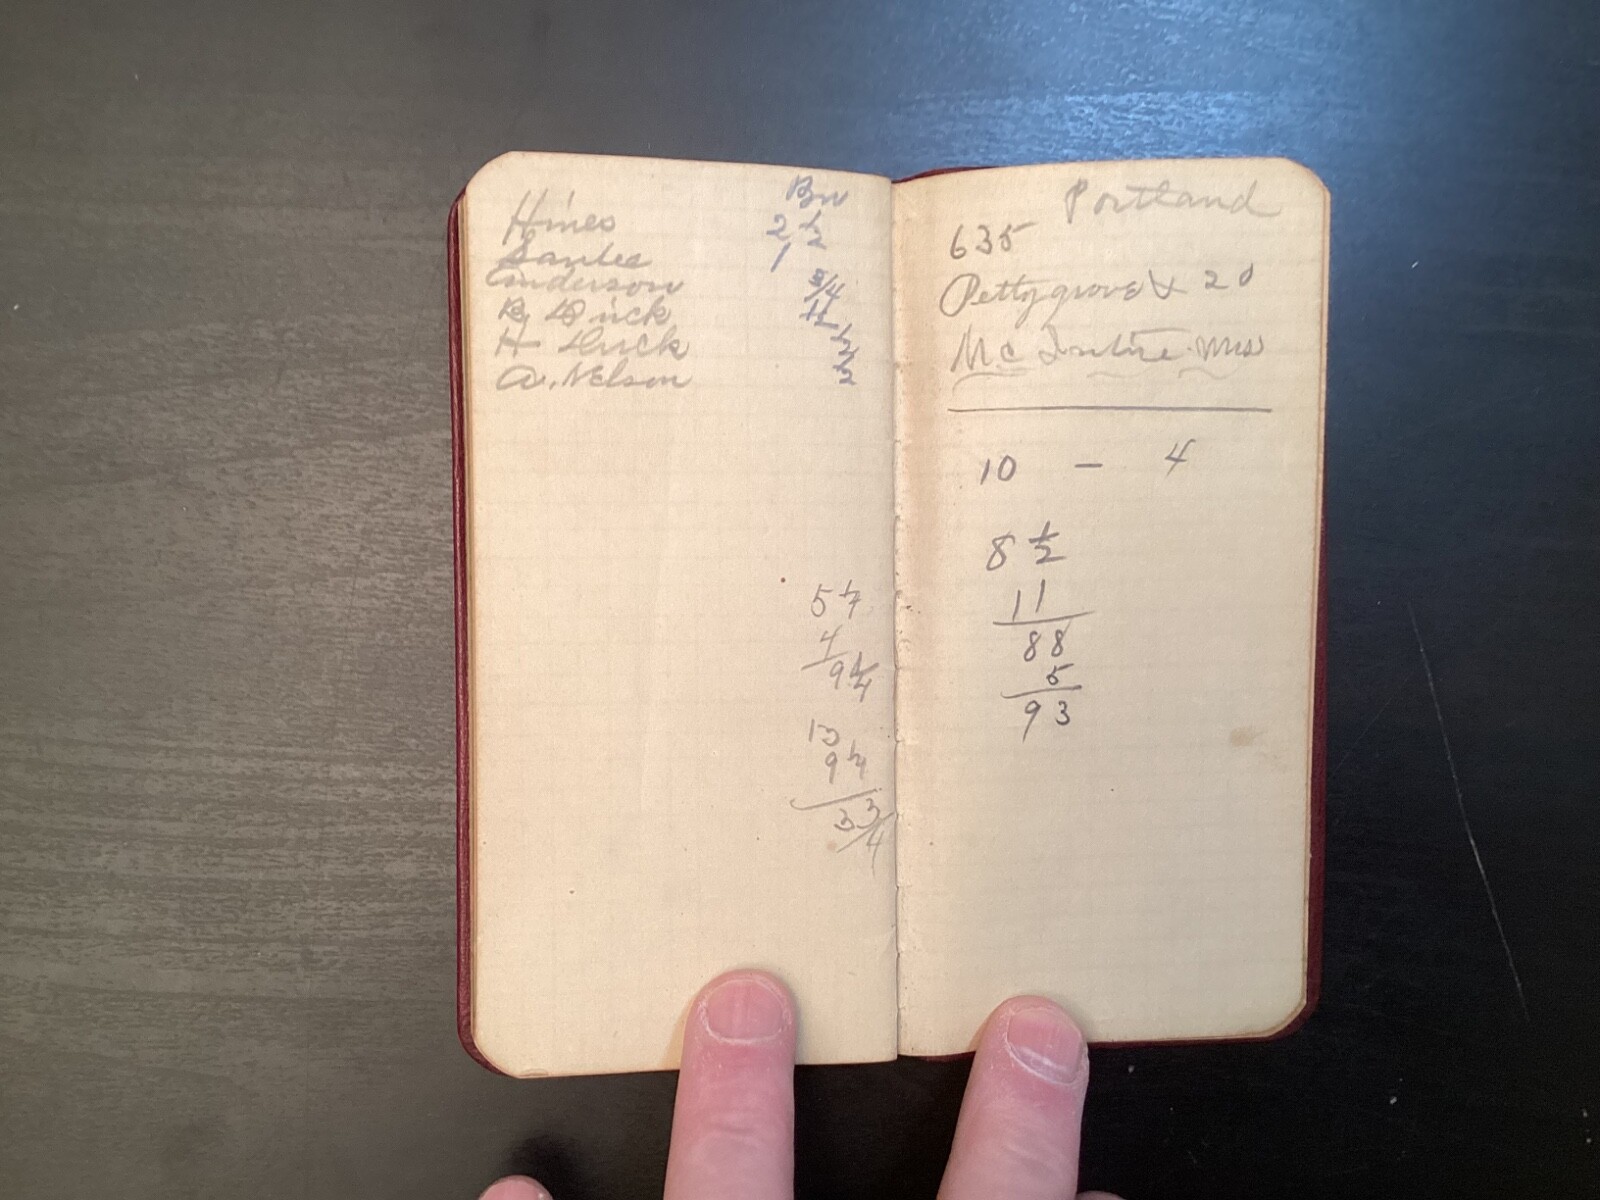 Bu
Hines 2 1/2
Santee 1
Anderson 3/4
B Duck 1 1/2
H Duck 1/2
A. Nelson 1/2
5 1/4
4
9 1/4
13
9 1/4
3 3/4
Portland
635
Pettygrove & 20
Mc Intire Mrs
10 - 4
8 1/2
11
88
5
93